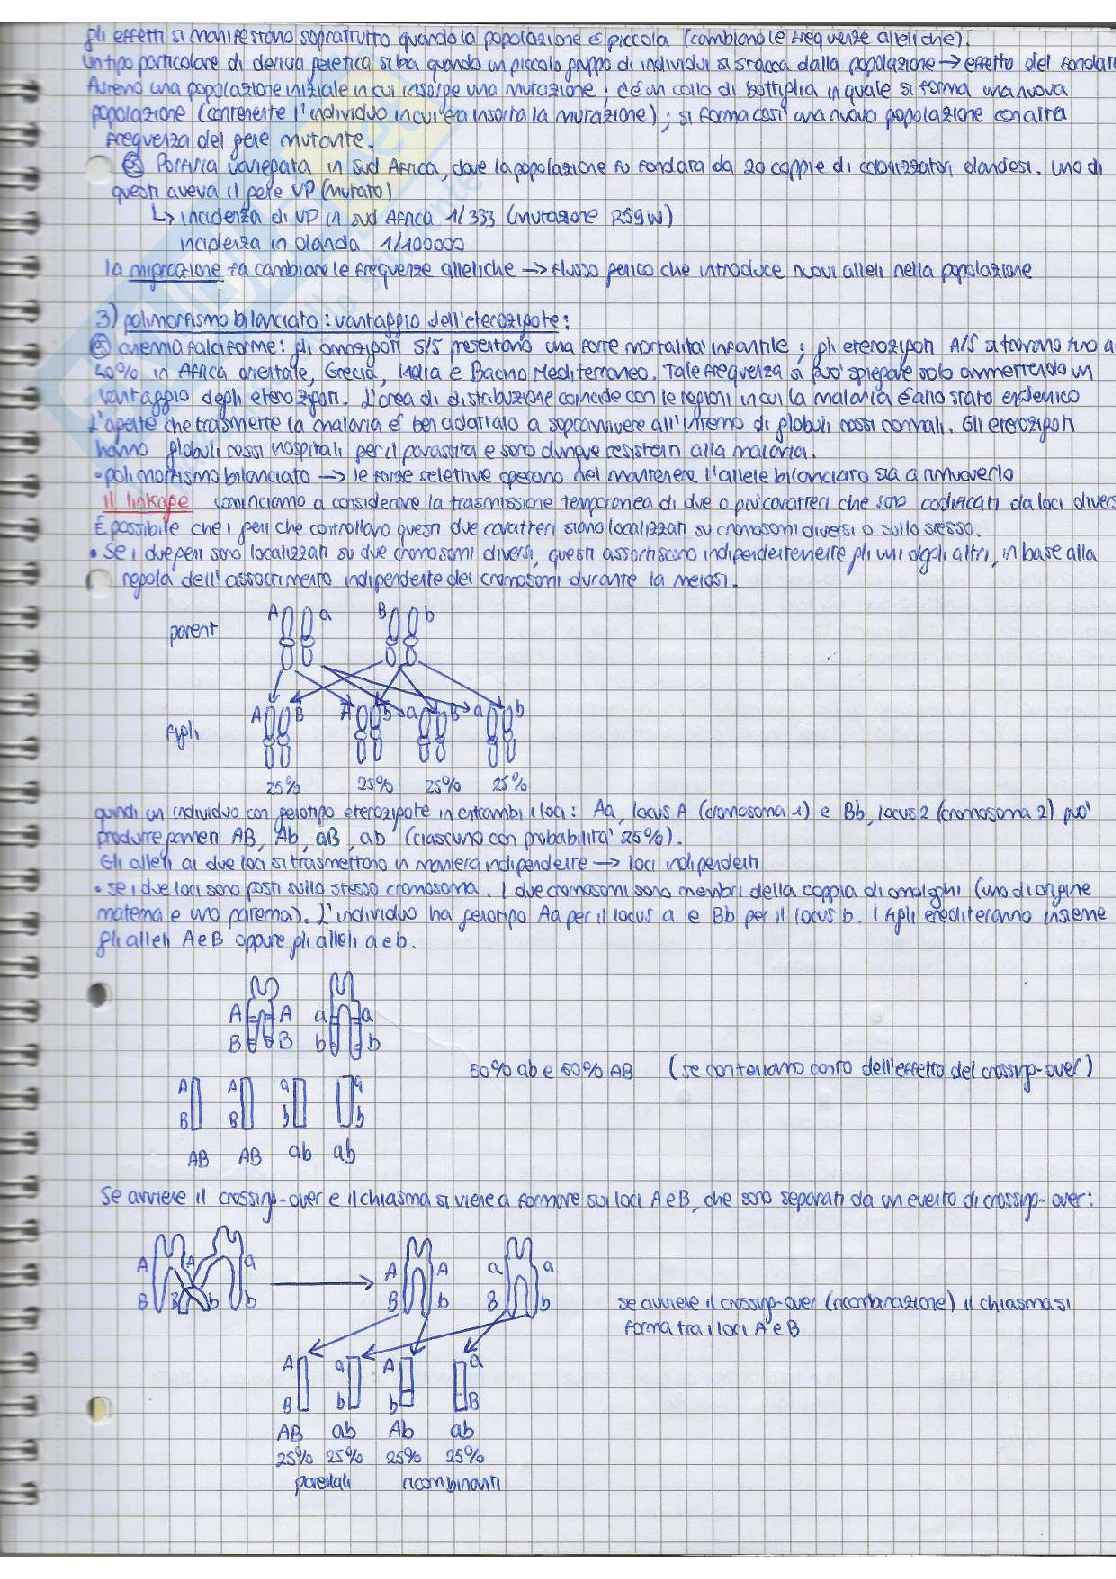 gli effetti si manifestano soprattutto quando la popolazione è piccola (cambiano le frequenze alleliche).
Un tipo particolare di deriva genetica si ha quando un piccolo gruppo di individui si stacca dalla popolazione → effetto del fondat
Avremo una popolazione iniziale in cui insorge una mutazione; c'è un collo di bottiglia in quale si forma una nuova
popolazione (contenente l'individuo in cui era insorta la mutazione); si forma così una nuova popolazione con altra
frequenza del gene mutante.
es Porfiria variegata in Sud Africa, dove la popolazione fu fondata da 20 coppie di colonizzatori olandesi. Uno di
questi aveva il gene VP (mutato)
↳ incidenza di VP in Sud Africa 1/333 (mutazione R59W)
incidenza in Olanda 1/100000
la migrazione fa cambiare le frequenze alleliche → flusso genico che introduce nuovi alleli nella popolazione
3) polimorfismo bilanciato: vantaggio dell'eterozigote:
es anemia falciforme: gli omozigoti S/S presentano una forte mortalità infantile; gli eterozigoti A/S si trovano fino a
40% in Africa orientale, Grecia, Italia e Bacino Mediterraneo. Tale frequenza si può spiegare solo ammettendo un
vantaggio degli eterozigoti. L'area di distribuzione coincide con le regioni in cui la malaria è/ano stato endemico
L'agente che trasmette la malaria è ben adattato a sopravvivere all'interno di globuli rossi normali. Gli eterozigoti
hanno globuli rossi inospitali per il parassita e sono dunque resistenti alla malaria.
• polimorfismo bilanciato → le forze selettive operano nel mantenere l'allele bilanciato sia a rimuoverlo
il linkage cominciamo a considerare la trasmissione temporanea di due o più caratteri che sono codificati da loci divers
È possibile che i geni che controllano questi due caratteri siano localizzati su cromosomi diversi o sullo stesso.
• Se i due geni sono localizzati su due cromosomi diversi, questi assortiscono indipendentemente gli uni dagli altri, in base alla
regola dell'assortimento indipendente dei cromosomi durante la meiosi.
A a B b
parent
A B A b a B a b
figli
25% 25% 25% 25%
quindi un individuo con genotipo eterozigote in entrambi i loci: Aa, locus A (cromosoma 1) e Bb, locus 2 (cromosoma 2) può
produrre gameti AB, Ab, aB, ab (ciascuno con probabilità 25%).
Gli alleli ai due loci si trasmettono in maniera indipendente → loci indipendenti
• se i due loci sono posti sullo stesso cromosoma. I due cromosomi sono membri della coppia di omologhi (uno di origine
materna e uno paterna). L'individuo ha genotipo Aa per il locus a e Bb per il locus b. I figli erediteranno insieme
gli alleli A e B oppure gli alleli a e b.
A A a a
B B b b
50% ab e 50% AB (se non teniamo conto dell'effetto del crossing-over)
A A a a
B B b b
AB AB ab ab
Se avviene il crossing-over e il chiasma si viene a formare sui loci A e B, che sono separati da un evento di crossing-over:
A A a A A a a
B B b b B b B b
se avviene il crossing-over (ricombinazione) il chiasma si
forma tra i loci A e B
A a A a
B b b B
AB ab Ab ab
25% 25% 25% 25%
parentali ricombinanti